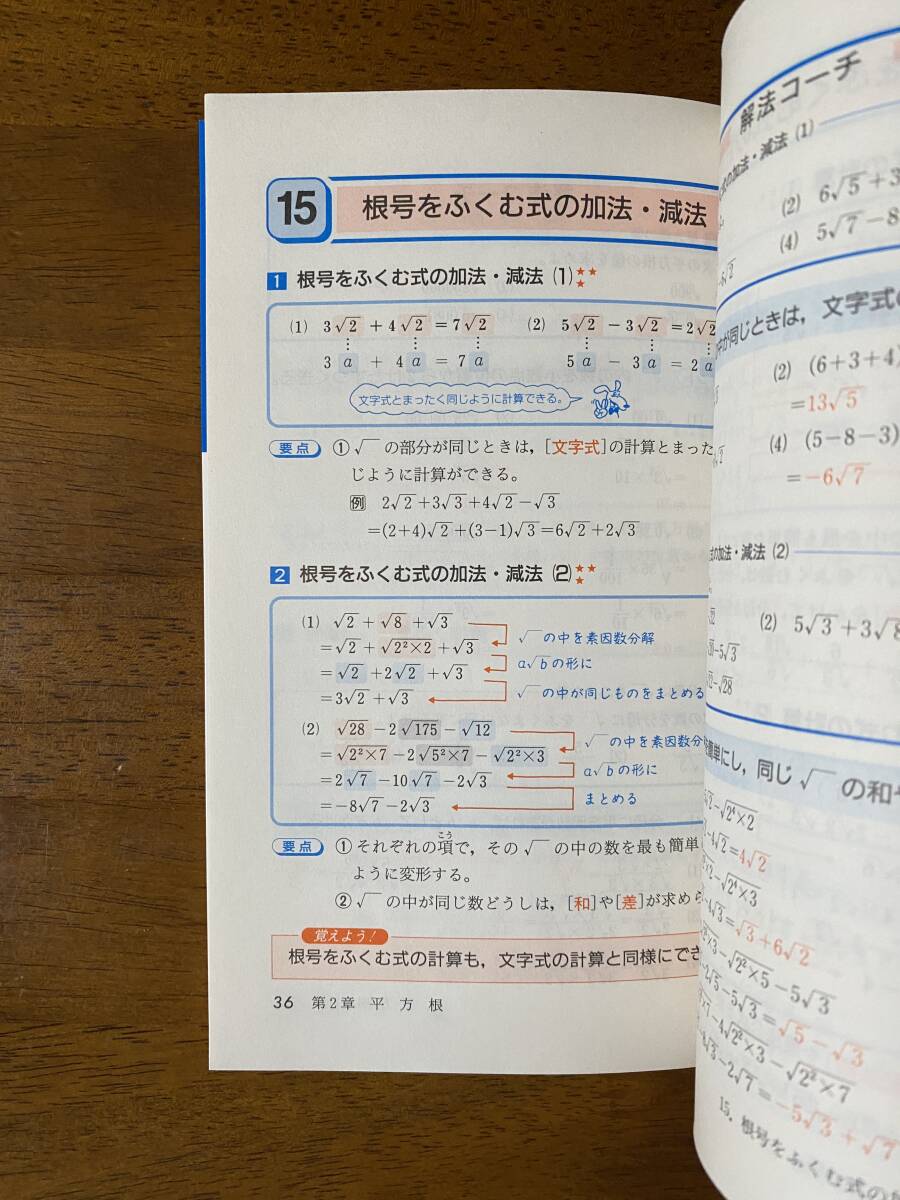 15 根号をふくむ式の加法・減法
1 根号をふくむ式の加法・減法 (1)★★★
(1) 3√2 + 4√2 = 7√2 (2) 5√2 − 3√2 = 2√2
3 a + 4 a = 7 a 5 a − 3 a = 2 a
文字式とまったく同じように計算できる。
要点 ①√ の部分が同じときは,[文字式]の計算とまった
じように計算ができる。
例 2√2+3√3+4√2−√3
=(2+4)√2+(3−1)√3=6√2+2√3
2 根号をふくむ式の加法・減法 (2)★★★
(1) √2 + √8 + √3
=√2 + √2²×2 + √3 √ の中を素因数分解
=√2 +2√2 +√3 a√b の形に
=3√2+√3 √ の中が同じものをまとめる
(2) √28 −2√175 −√12
=√2²×7 −2√5²×7 −√2²×3 √ の中を素因数分
=2√7 −10√7 −2√3 a√b の形に
=−8√7−2√3 まとめる
要点 ①それぞれの項で,その√ の中の数を最も簡単
こう
ように変形する。
②√ の中が同じ数どうしは,[和]や[差]が求めら
覚えよう!
根号をふくむ式の計算も,文字式の計算と同様にでき
36 第2章 平方根
解法コーチ
式の加法・減法 (1)
(2) 6√5+3
(4) 5√7−8
が同じときは,文字式の
(2) (6+3+4)
=13√5
(4) (5−8−3)
=−6√7
式の加法・減法 (2)
(2) 5√3+3√8
−5√3
−√28
簡単にし,同じ √ の和や
−√2⁴×2
−4√2=4√2
−√2⁴×3
−4√3=√3+6√2
−√2²×5−5√3
−2√5−5√3=√5−√3
−4√2²×3−√2²×7
−8√3−2√7=−5√3+√7
15. 根号をふくむ式の